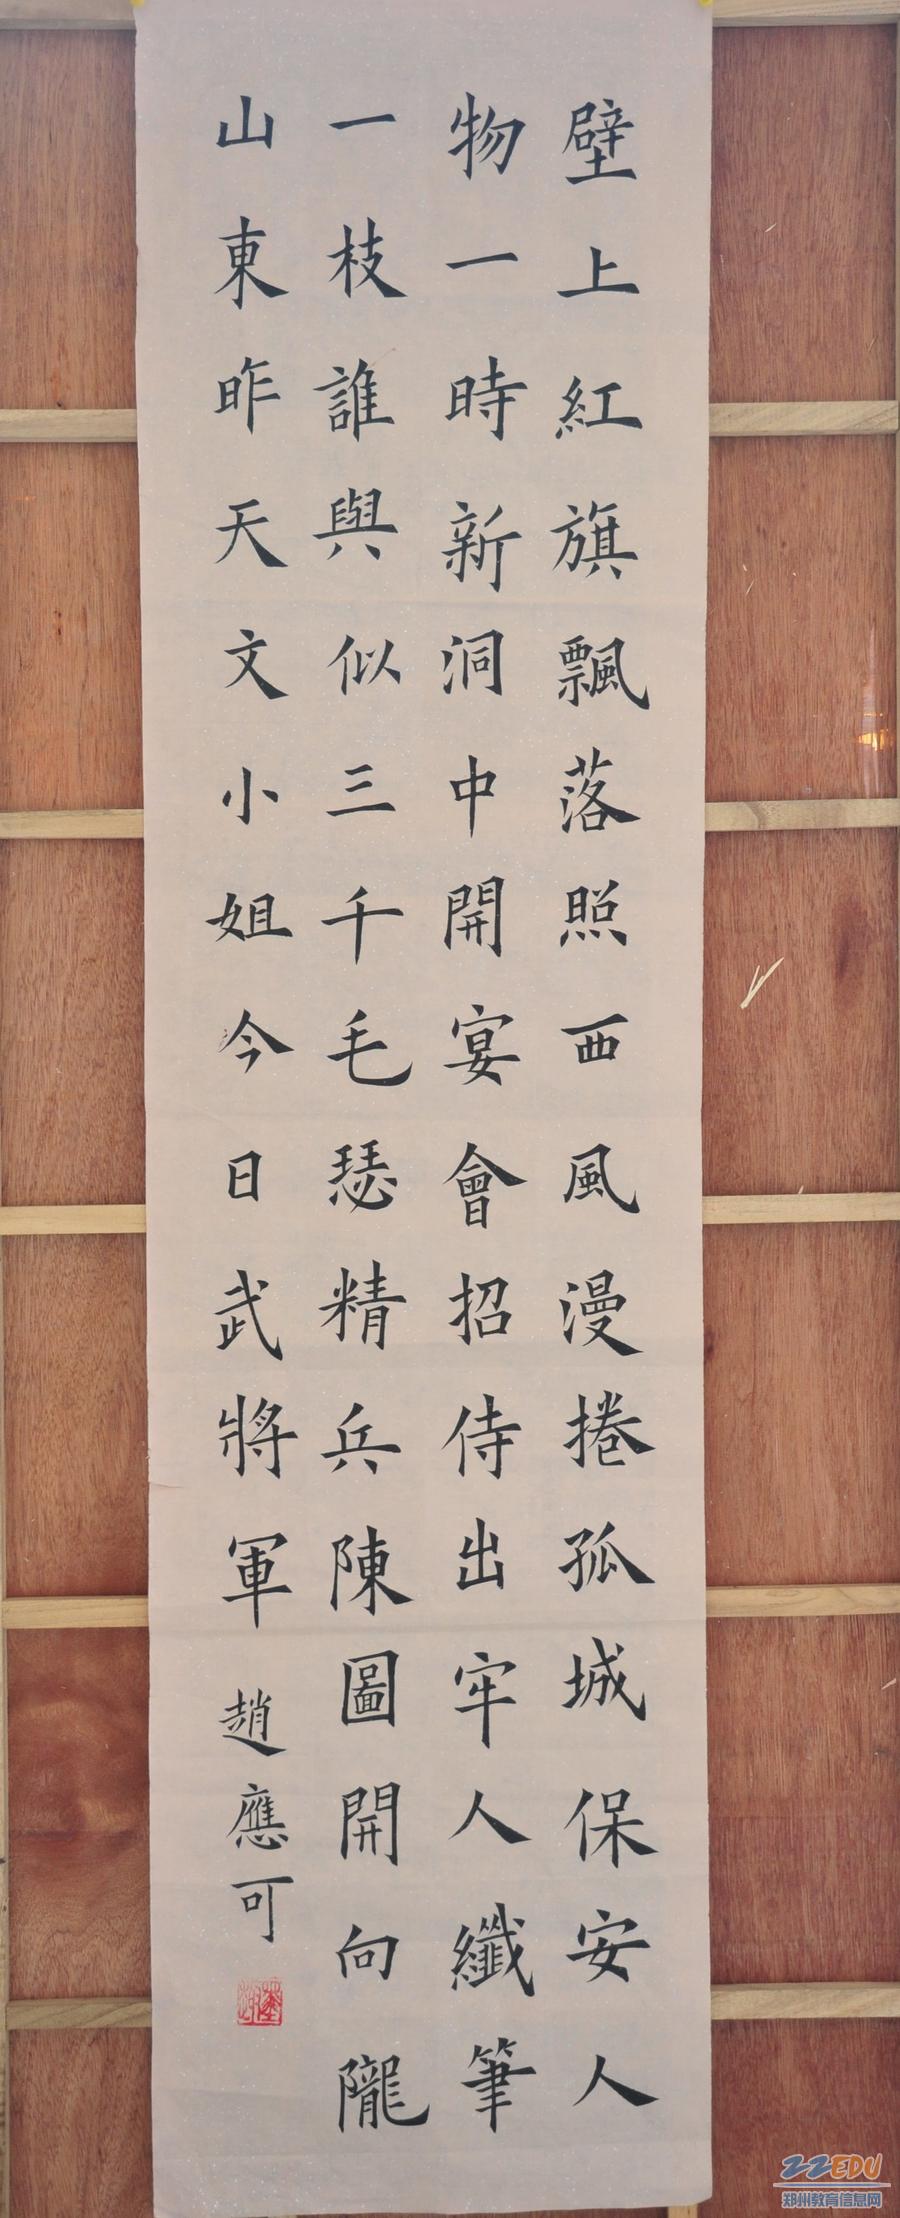 壁上紅旗飄落照西風漫捲孤城保安人
物一時新洞中開宴會招侍出牢人纖筆
一枝誰與似三千毛瑟精兵陳圖開向隴
山東昨天文小姐今日武將軍
趙應可
ZZEDU
郑州教育信息网